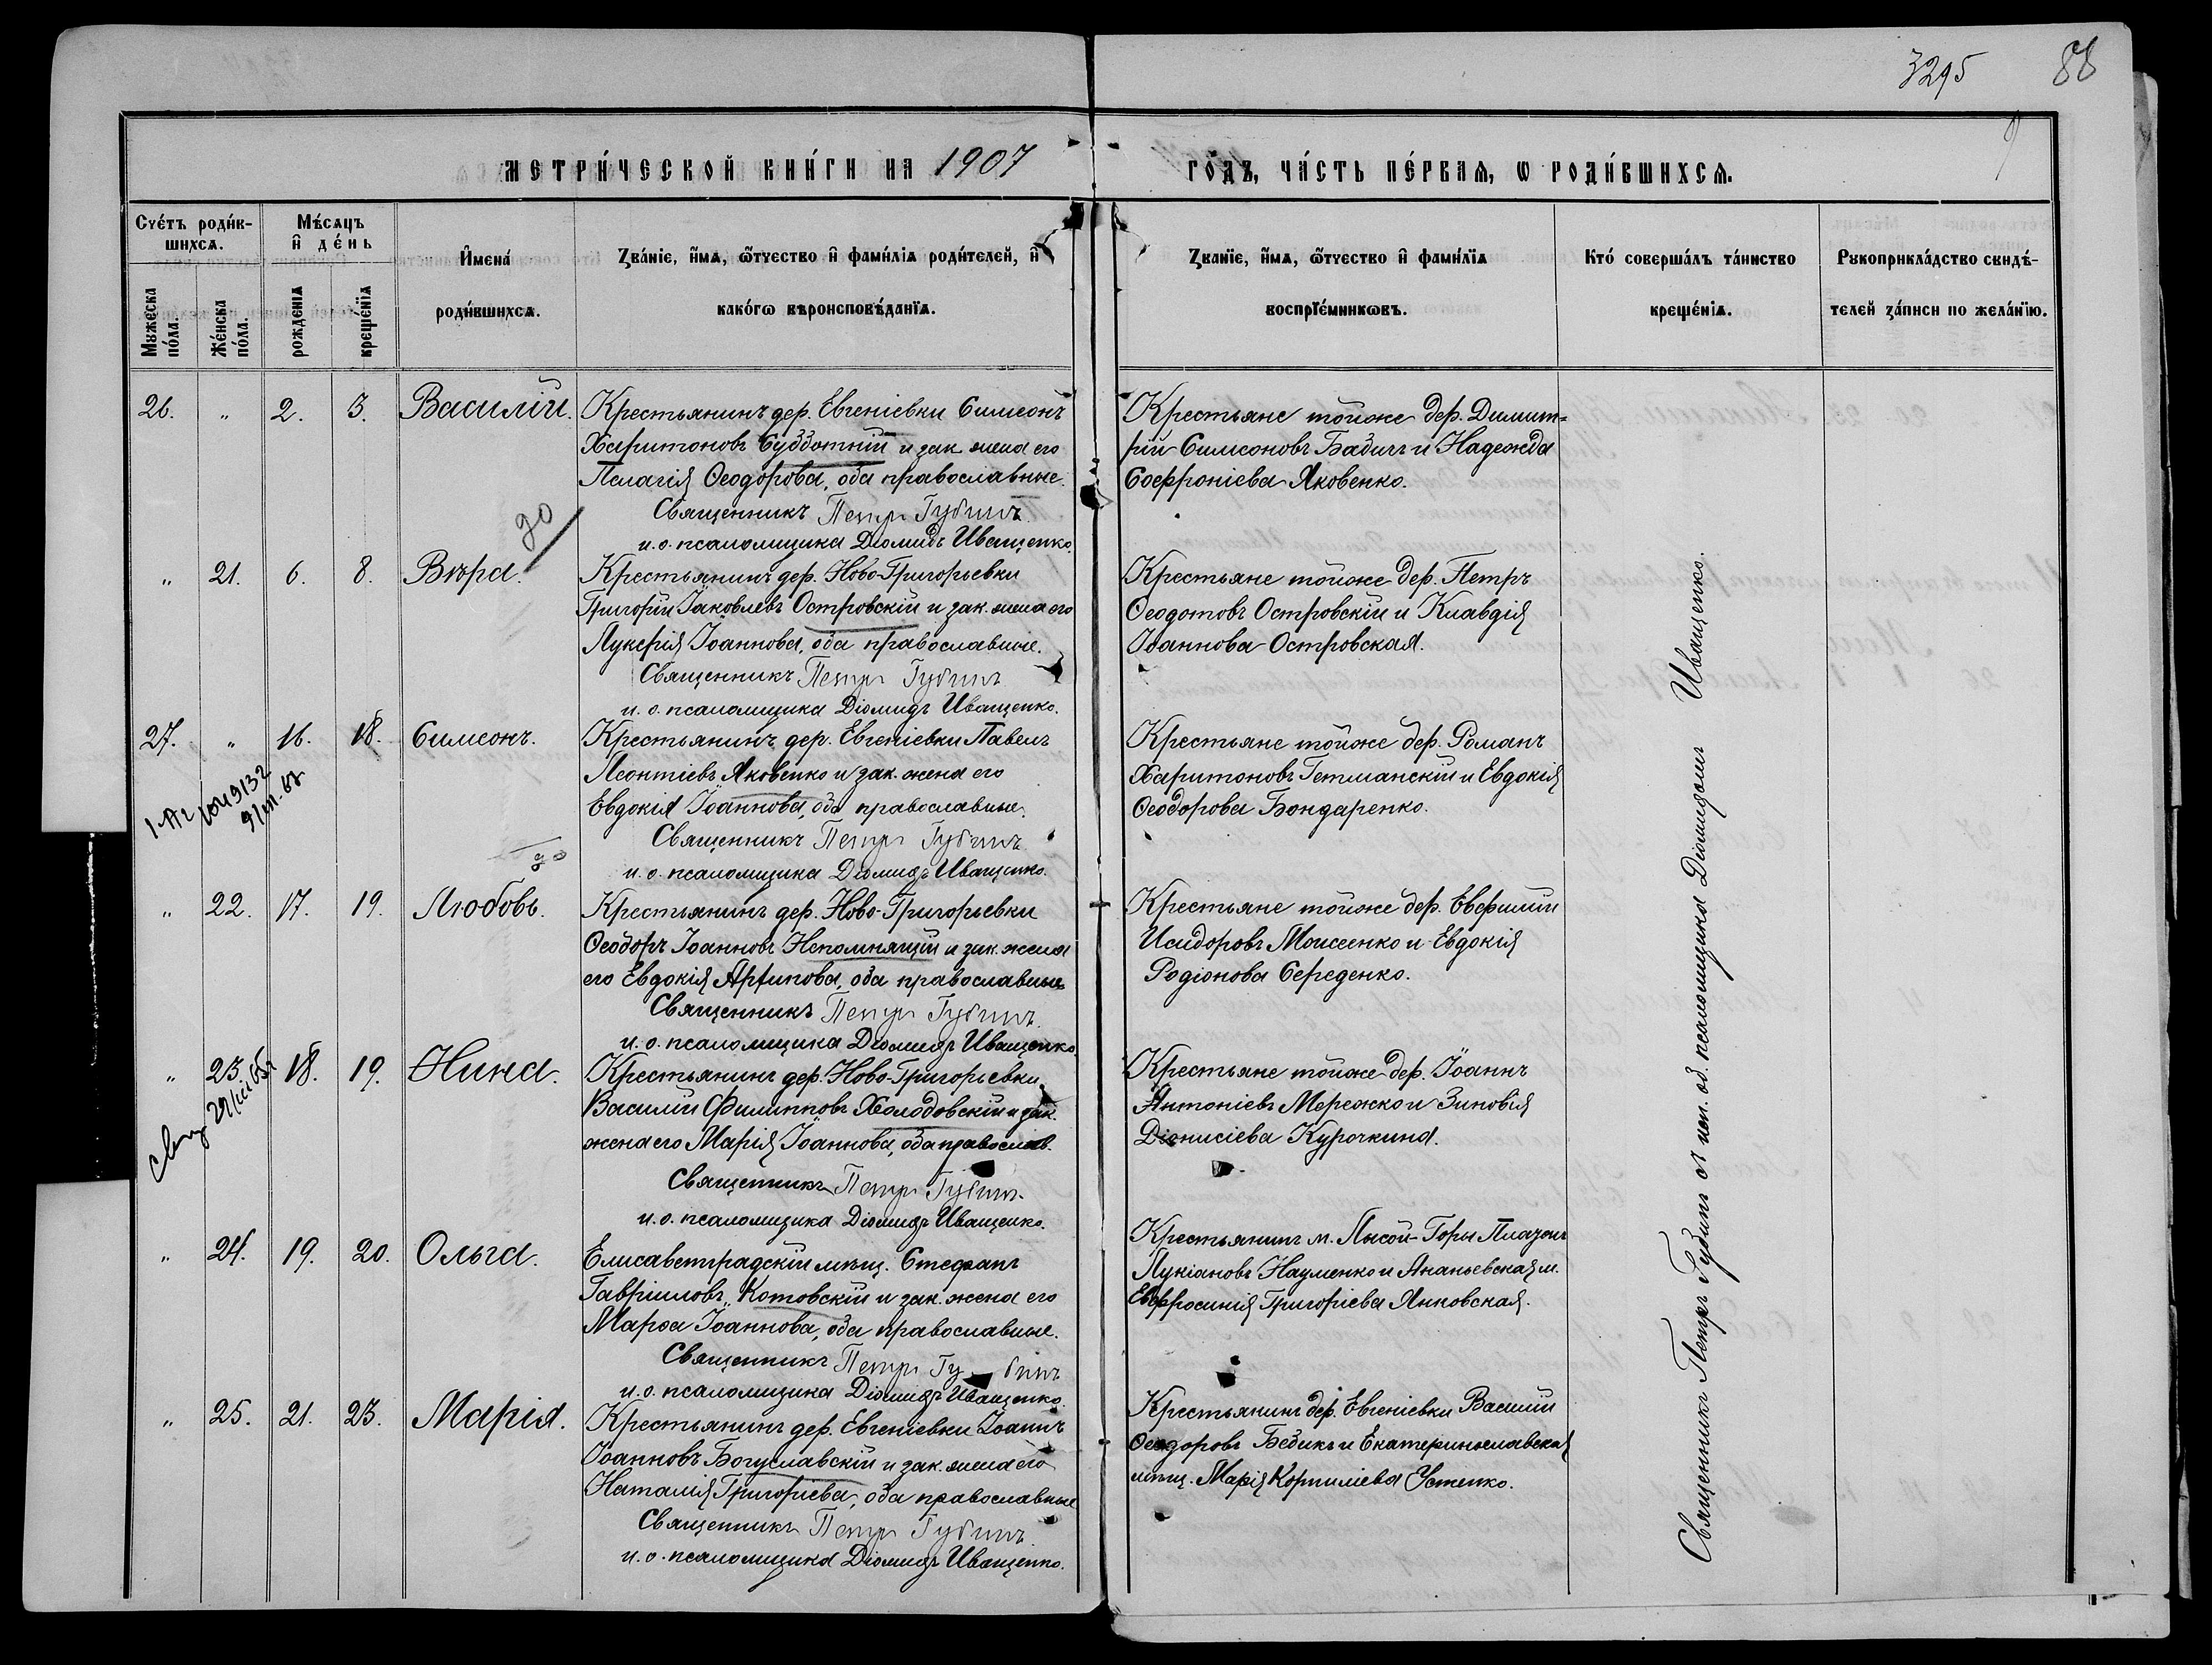 3295
88
МЕТРИ́ЧЕСКОЙ КНИ́ГИ НА 1907
ГО́ДЪ, ЧА́СТЬ ПЕ́РВАЯ, Ѡ РОДИ́ВШИХСЯ.
Счéтъ роди́в-
шихся.
Му́жеска по́ла.
Же́нска по́ла.
Мѣ́сяцъ
и҆ де́нь
рожденія
креще́нїя
И҆мена́
роди́вшихся.
Зва́ніе, и҆́мя, ѻ҆́тчество и҆ фами́лія роди́телей, и҆
како́гѡ вѣроисповѣ́данїя.
Зва́нїе, и҆́мя, ѻ҆́тчество и҆ фами́лїя
воспрїе́мникѡвъ.
Кто́ соверша́лъ та́инство
креще́нія.
Рукоприкла́дство свидѣ́-
телей за́писи по жела́нїю.
26. „ 2. 3. Василій.
Крестьянинъ дер. Евгеніевки Симеонъ
Харитоновъ Субботній и зак. жена его
Пелагія Ѳеодорова, оба православные.
Священникъ Петръ Губинъ.
и. о. псаломщика Діомидъ Иващенко.
Крестьяне тойже дер. Димит=
рій Симеоновъ Бадичъ и Надежда
Софроніева Яковенко.
до
„ 21. 6. 8. Вѣра.
Крестьянинъ дер. Ново-Григорьевки
Григорій Іаковлевъ Островскій и зак. жена его
Лукерія Іоаннова, оба православные.
Священникъ Петръ Губинъ
и. о. псаломщика Діомидъ Иващенко.
Крестьяне тойже дер. Петръ
Ѳеодотовъ Островскій и Клавдія
Іоаннова Островская.
27. „ 16. 18. Симеонъ.
Крестьянинъ дер. Евгеніевки Павелъ
Леонтіевъ Яковенко и зак. жена его
Евдокія Іоаннова, оба православные.
Священникъ Петръ Губинъ
и. о. псаломщика Діомидъ Иващенко.
Крестьяне тойже дер. Романъ
Харитоновъ Гетманскій и Евдокія
Ѳеодорова Бондаренко.
до
„ 22. 17. 19. Любовь.
Крестьянинъ дер. Ново-Григорьевки
Ѳеодоръ Іоанновъ Непомнящій и зак. жена
его Евдокія Архипова, оба православные
Священникъ Петръ Губинъ.
и. о. псаломщика Діомидъ Иващенко.
Крестьяне тойже дер. Евфимій
Исидоровъ Моисеенко и Евдокія
Родіонова Середенко.
„ 23. 18. 19. Нина.
Крестьянинъ дер. Ново-Григорьевки
Василій Филипповъ Холодовскій и зак.
жена его Марія Іоаннова, оба православ.
Священникъ Петръ Губинъ.
и. о. псаломщика Діомидъ Иващенко.
Крестьяне тойже дер. Іоаннъ
Антоніевъ Мережко и Зиновія
Діонисіева Курочкина.
„ 24. 19. 20. Ольга.
Елисаветградскій мѣщ. Стефанъ
Гавріиловъ Котовскій и зак. жена его
Марѳа Іоаннова, оба православные.
Священникъ Петръ Губинъ
и. о. псаломщика Діомидъ Иващенко.
Крестьянинъ м. Лысой-Горы Платонъ
Лукіановъ Науменко и Ананьевская м.
Евфросинія Григоріева Янковская.
„ 25. 21. 23. Марія.
Крестьянинъ дер. Евгеніевки Іоаннъ
Іоанновъ Богуславскій и зак. жена его
Наталія Григоріева, оба православные
Священникъ Петръ Губинъ.
и. о. псаломщика Діомидъ Иващенко.
Крестьянинъ дер. Евгеніевки Василій
Ѳеодоровъ Бедикъ и Екатеринославская
мѣщ. Марія Корниліева Устенко.
Священникъ Петръ Губинъ съ исп. об. псаломщика Діомидомъ Иващенко.